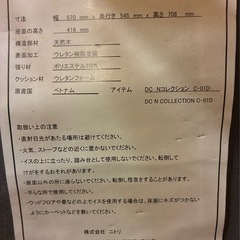 寸法 幅 570 mm x 奥行き 545 mm x 高さ 708 mm
座面の高さ 416 mm
構造部材 天然木
表面加工 ウレタン樹脂塗装
張り材 ポリエステル100%
クッション材 ウレタンフォーム
原産国 ベトナム アイテム DC Nコレクション C-01D
DC N COLLECTION C-01D
取扱い上の注意
・直射日光があたる場所は避けてください。
・火気、ストーブなどの近くに置かないでください。
・イスの上に立ったり、踏み台として使用しないでください。転倒して
けがをするおそれがあります。
・座面以外の所に座らないでください。転倒し怪我をすることがあります。
・平らな所で使用してください。
・ウッドフロアや畳などの上でイスを使用する場合は、床面にキズがつかない
ようにカーペットなどを敷いてください。
株式会社 ニトリ